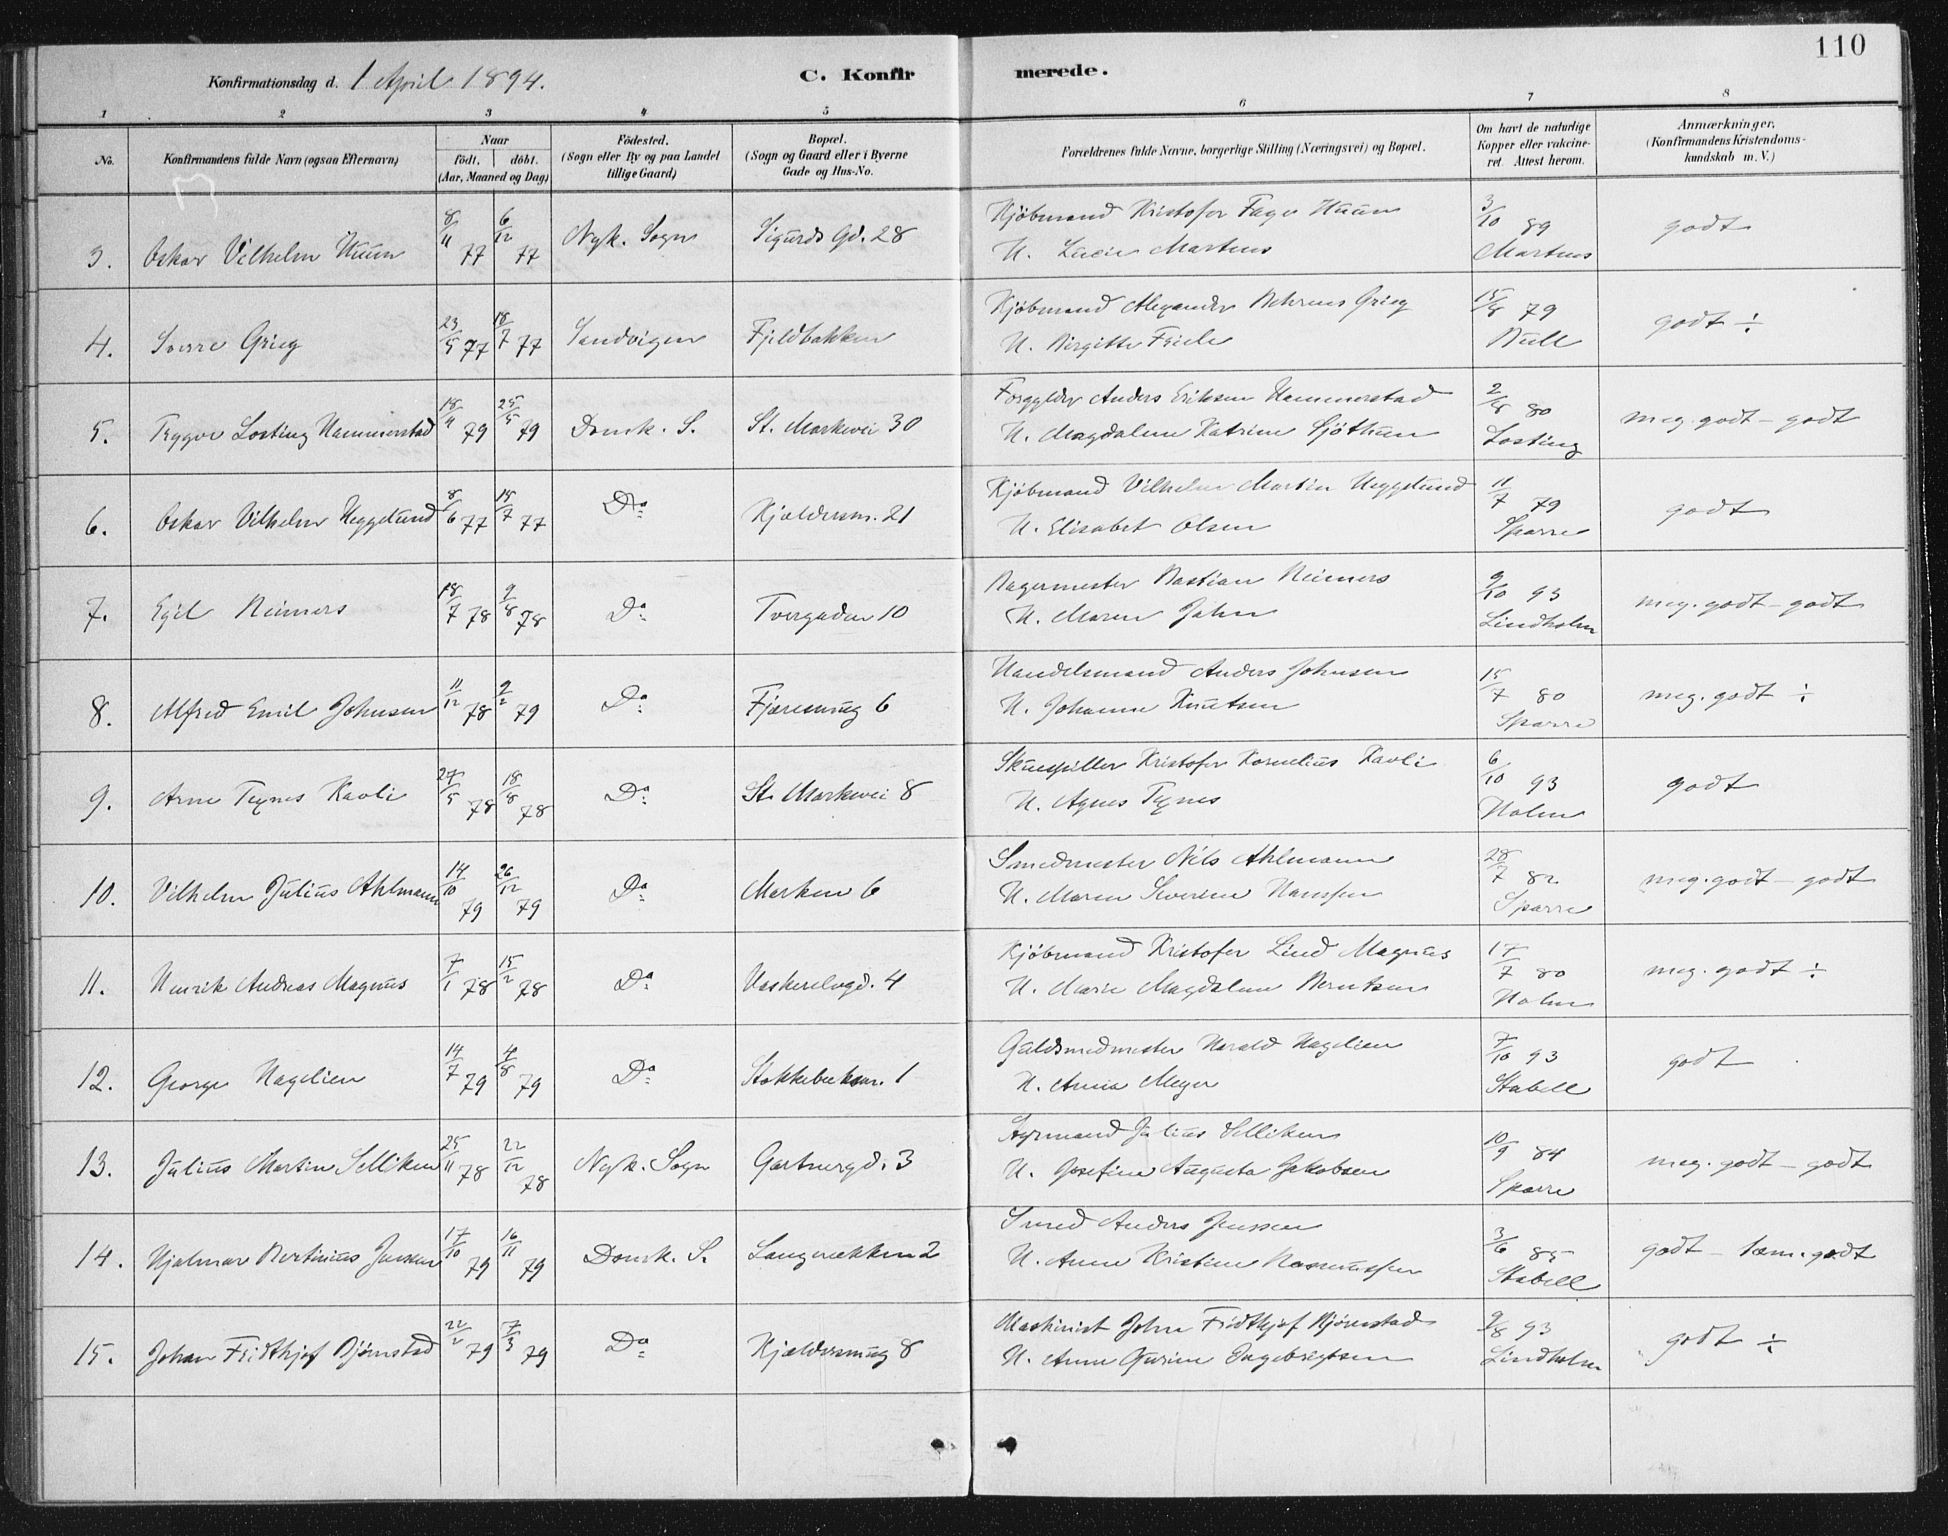 110
Konfirmationsdag d. 1 April 1894.
C. Konfirmerede.
1 2 3 4 5 6 7 8
No.
Konfirmandens fulde Navn (ogsaa Efternavn)
Naar
födt. | döbt.
(Aar, Maaned og Dag)
Födested.
(Sogn eller By og paa Landet
tillige Gaard)
Bopæl.
(Sogn og Gaard eller i Byerne
Gade og Hus-No.
Forældrenes fulde Navne, borgerlige Stilling (Næringsvei) og Bopæl.
Om havt de naturlige
Kopper eller vakcine-
ret. Attest herom.
Anmærkninger.
(Konfirmandens Kristendoms-
kundskab m. V.)
3. Oskar Vilhelm Huun 8/11 77 6/12 77 Nyk. Sogn Sigurds Gd. 28 Kjöbmand Kristofer Fage Huun 3/10 89 godt
H. Lucie Martens Martens
4. Sverre Grieg 23/5 77 18/7 77 Sandvigen Fjeldbakken Kjöbmand Alexander Behrens Grieg 15/8 79 godt ÷
H. Birgitte Friele Bull
5. Tryggve Losting Hammerstad 18/4 79 25/5 79 Domk. S. St. Markevei 30 Forgylder Anders Eriksen Hammerstad 2/8 80 meg. godt – godt
H. Magdalene Katrine Sjöthun Losting
6. Oskar Vilhelm Heggelund 8/6 77 15/7 77 Do Kjældersm. 21 Kjöbmand Vilhelm Martin Heggelund 11/7 79 godt
H. Elisabet Olsen Sparre
7. Egil Reimers 18/7 78 9/8 78 Do Tvergaden 10 Bagermester Bastian Reimers 9/10 93 meg. godt – godt
H. Maren Jahn Lindholm
8. Alfred Emil Johnsen 11/12 78 9/2 79 Do Fjæresmug 6 Handelsmand Anders Johnsen 15/7 80 meg. godt ÷
H. Johanne Knutsen Sparre
9. Arne Tynes Kavli 27/5 78 18/8 78 Do St. Markevei 8 Skuespiller Kristofer Kornelius Kavli 6/10 93 godt
H. Agnes Tynes Holm
10. Vilhelm Julius Ahlmann 14/10 79 26/12 79 Do Marken 6 Smedmester Nils Ahlmann 28/7 82 meg. godt – godt
H. Maren Severine Hanssen Sparre
11. Henrik Andreas Magnus 7/1 78 15/2 78 Do Vaskerelvgd. 4 Kjöbmand Kristofer Lind Magnus 17/7 80 meg. godt ÷
H. Marie Magdalene Berntsen Holm
12. George Hagelien 14/7 79 4/8 79 Do Stokkebæksm. 1 Guldsmedmester Harald Hagelien 7/10 93 godt
H. Anna Meyer Stabell
13. Julius Martin Selliken 25/11 78 22/12 78 Nyk. Sogn Gartnergd. 3 Styrmand Julius Selliken 10/9 84 meg. godt – godt
H. Josefine Augusta Jakobsen Sparre
14. Hjalmar Bertinius Jenssen 17/10 79 16/11 79 Domk. S. Langerækken 2 Smed Anders Jenssen 3/6 85 godt – tem. godt
H. Anne Kristine Rasmussen Stabell
15. Johan Fridthjof Björnstad 22/2 79 7/3 79 Do Kjældersmug 8 Maskinist John Fridthjof Björnstad 9/8 93 godt ÷
H. Anne Gurine Ingebrigtsen Lindholm